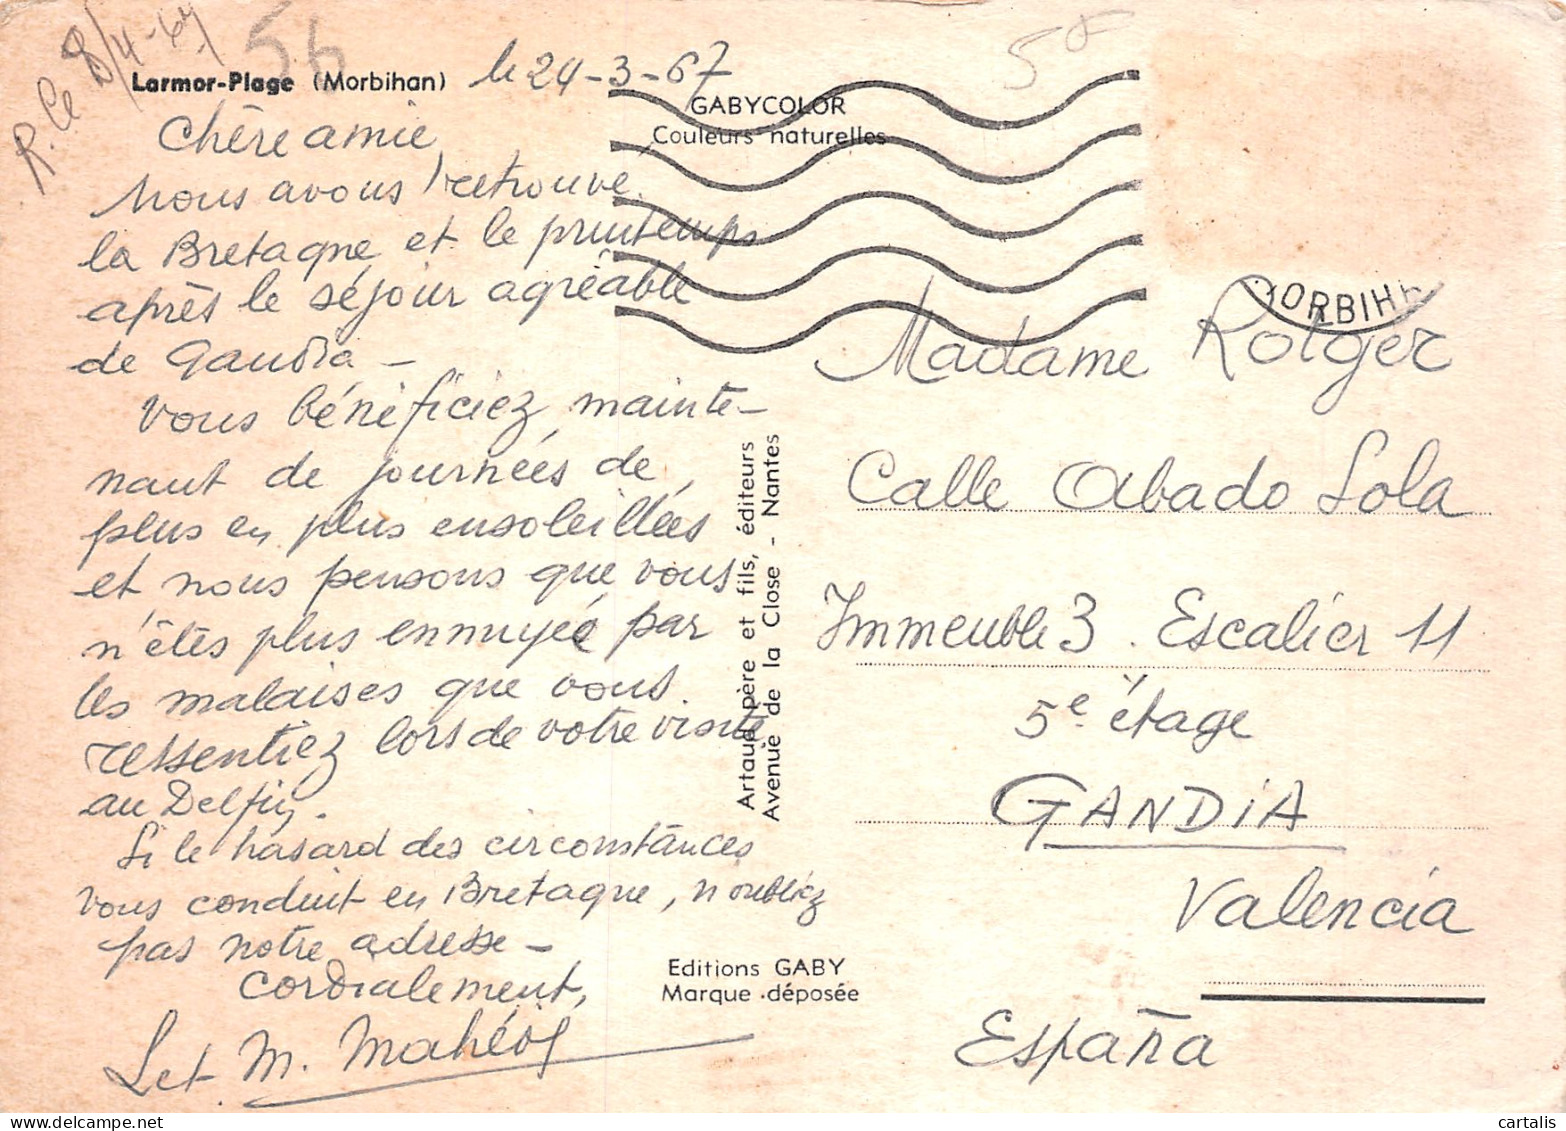 R. Ce 8/4-67
56
5F
Larmor-Plage (Morbihan) le 24-3-67
GABYCOLOR
Couleurs naturelles
Chère amie
Nous avons retrouvé
la Bretagne et le printemps
après le séjour agréable
de Gandia -
Vous bénéficiez mainte-
nant de journées de
plus en plus ensoleillées
et nous pensons que vous
n'êtes plus ennuyée par
les malaises que vous
ressentiez lors de votre visite
au Delfin.
Si le hasard des circonstances
vous conduit en Bretagne, n'oubliez
pas notre adresse -
Cordialement,
L et M. Mahéo
Artaud père et fils, éditeurs
Avenue de la Close - Nantes
Editions GABY
Marque déposée
MORBIHAN
Madame Rotger
Calle Abado Sola
Immeuble 3. Escalier 11
5e étage
GANDIA
Valencia
España
cartalis